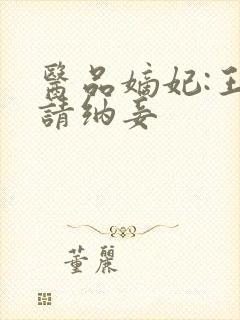 醫品嫡妃:王
請納妾
董麗